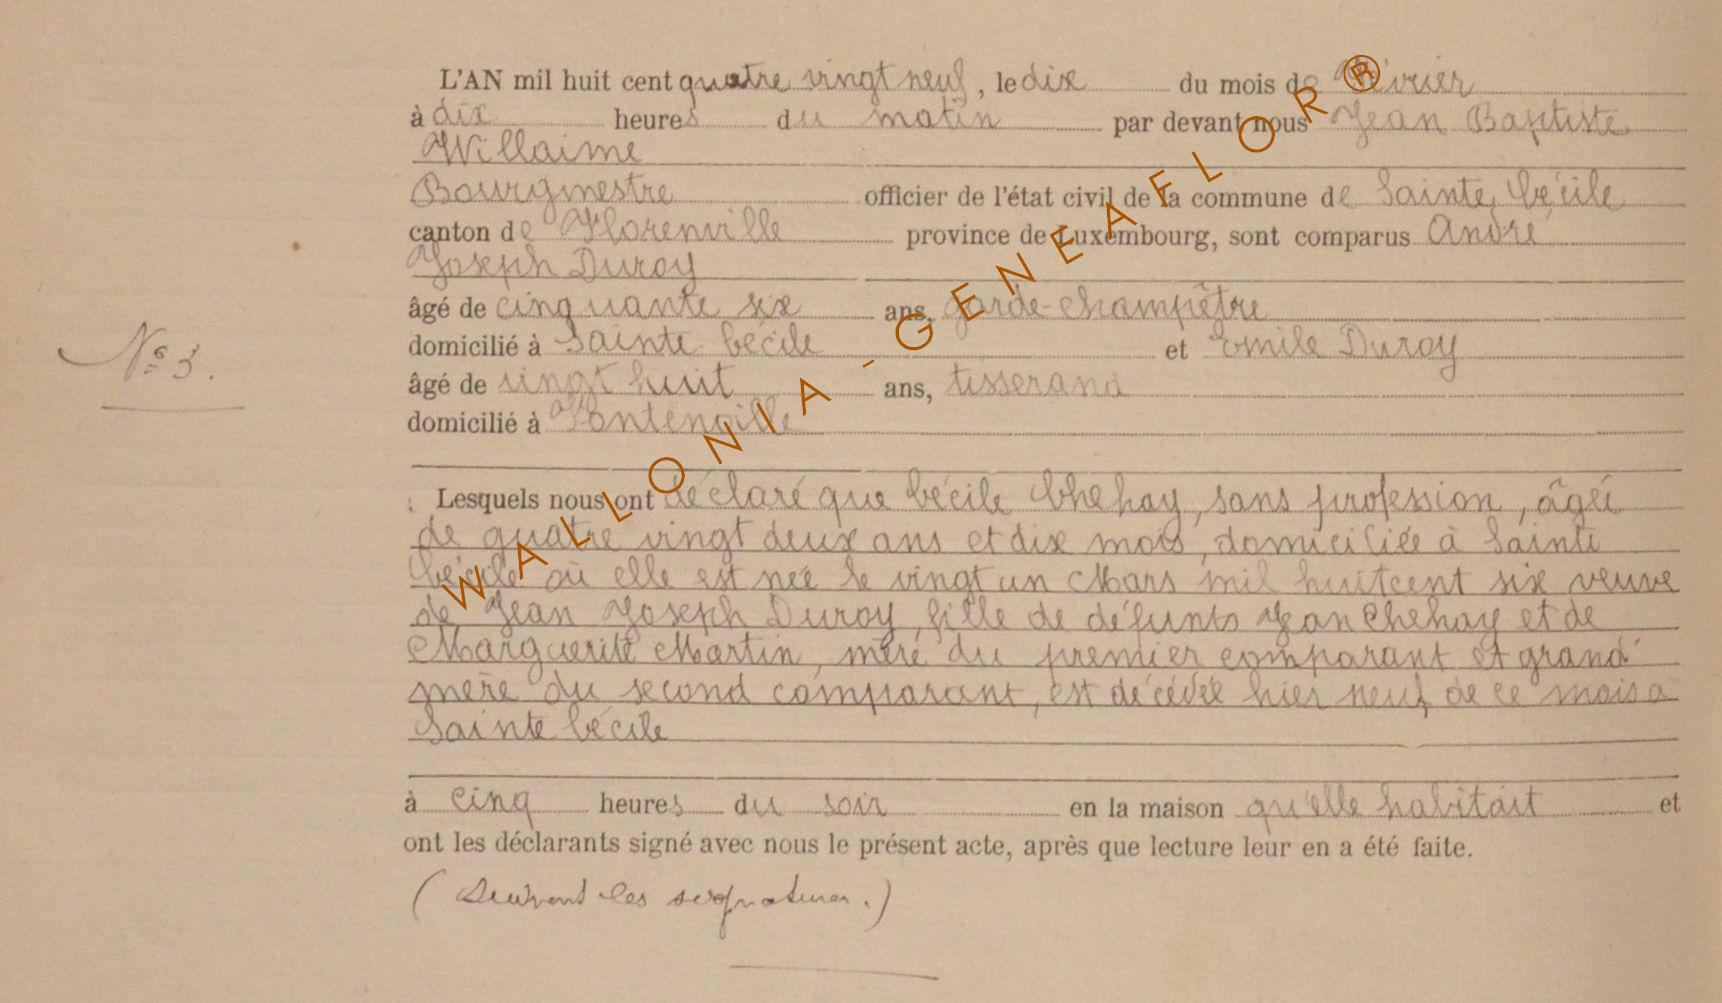 L'AN mil huit cent quatre vingt neuf, le dix du mois de Février
à dix heures du matin par devant nous Jean Baptiste
Willaime
Bourgmestre officier de l'état civil de la commune de Sainte Cécile
canton de Florenville province de Luxembourg, sont comparus André
Joseph Duroy
âgé de cinquante six ans, garde-champêtre
domicilié à Sainte Cécile et Emile Duroy
N° 3.
âgé de vingt huit ans, tisserand
domicilié à Fontenoille
Lesquels nous ont déclaré que Cécile Chehay, sans profession, âgée
de quatre vingt deux ans et dix mois, domiciliée à Sainte
Cécile où elle est née le vingt un Mars mil huitcent six veuve
de Jean Joseph Duroy, fille de défunts Jean Chehay et de
Marguerite Martin, mère du premier comparant et grand'
mère du second comparant, est décédée hier neuf de ce mois à
Sainte Cécile
à cinq heures du soir en la maison qu'elle habitait et
ont les déclarants signé avec nous le présent acte, après que lecture leur en a été faite.
(Suivent les signatures.)
WALLONIA-GENEAFLOR®